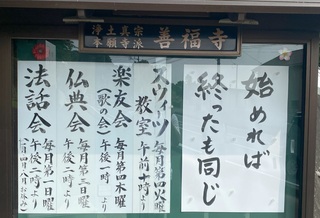 浄土真宗
本願寺派
善福寺
始めれば
終ったも同じ
スウィーツ
教室
毎月第四火曜
午前十時より
楽友会
(歌の会)
毎月第四木曜
午後二時より
仏典会
毎月第三日曜
午後一時より
法話会
毎月第一日曜
午後二時より
(一月四月八月お休み)